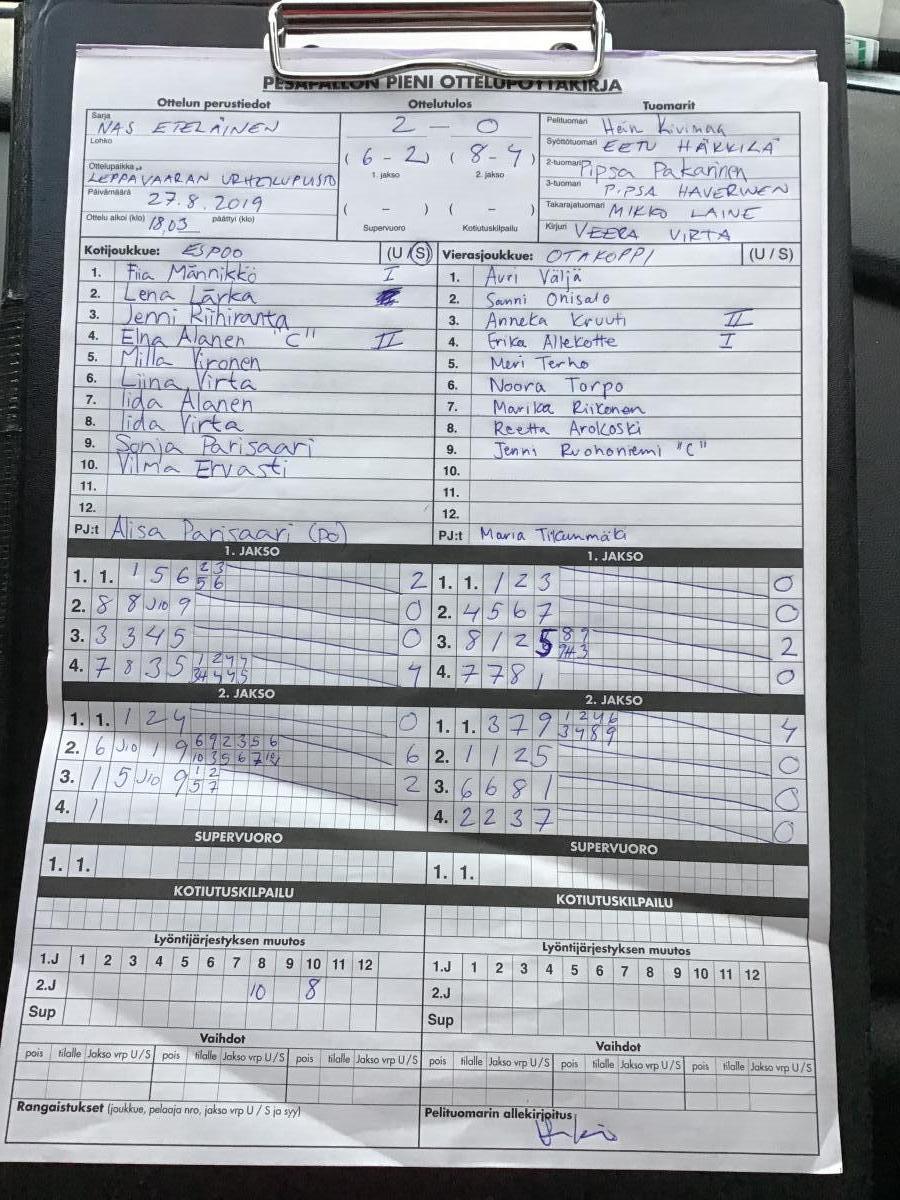 PESÄPALLON PIENI OTTELUPÖYTÄKIRJA
Ottelun perustiedot
Ottelutulos
Tuomarit
Sarja NAS ETELÄINEN
Lohko
Ottelupaikka LEPPÄVAARAN URHEILUPUISTO
Päivämäärä 27.8.2019
Ottelu alkoi (klo) 18.03 päättyi (klo)
2 - 0
(6 - 2) (8 - 4)
1. jakso 2. jakso
( - ) ( - )
Supervuoro Kotiutuskilpailu
Pelituomari Kivimaa
Syöttötuomari EETU HÄKKILÄ
2-tuomari Pipsa Pakarinen
3-tuomari PIPSA HAVERINEN
Takarajatuomari MIKKO LAINE
Kirjuri VEERA VIRTA
Kotijoukkue: ESPOO (U / S)
1. Fiia Männikkö I
2. Lena Lärka
3. Jenni Riihiranta
4. Elna Alanen "C" II
5. Milla Vironen
6. Liina Virta
7. Iida Alanen
8. Iida Virta
9. Sonja Parisaari
10. Vilma Ervasti
11.
12.
PJ:t Alisa Parisaari (po)
Vierasjoukkue: OTAKOPPI (U / S)
1. Auri Väljä
2. Sanni Onisalo
3. Anneka Kruuti II
4. Erika Allekotte I
5. Meri Terho
6. Noora Torpo
7. Marika Riikonen
8. Reetta Arokoski
9. Jenni Ruohoniemi "C"
10.
11.
12.
PJ:t Maria Tikunmäki
1. JAKSO
1. 1. 1 5 6 2 3 2
5 6
2. 8 8 J10 9 0
3. 3 3 4 5 0
4. 7 8 3 5 4
1. JAKSO
1. 1. 1 2 3 0
2. 4 5 6 7 0
3. 8 1 2 5 2
4. 7 7 8 1 0
2. JAKSO
1. 1. 1 2 4 0
2. 6 J10 1 9 6 9 2 3 5 6 6
10 3 5 6 7
3. 1 5 J10 9 1 2 2
5 7
4. 1
2. JAKSO
1. 1. 3 7 9 1 2 4 6 4
3 4 8 9
2. 1 1 2 5 0
3. 6 6 8 1 0
4. 2 2 3 7 0
SUPERVUORO
1. 1.
SUPERVUORO
1. 1.
KOTIUTUSKILPAILU
KOTIUTUSKILPAILU
Lyöntijärjestyksen muutos
1.J 1 2 3 4 5 6 7 8 9 10 11 12
2.J 10 8
Sup
Lyöntijärjestyksen muutos
1.J 1 2 3 4 5 6 7 8 9 10 11 12
2.J
Sup
Vaihdot
pois tilalle Jakso vrp U/S pois tilalle Jakso vrp U/S pois tilalle Jakso vrp U/S
Vaihdot
pois tilalle Jakso vrp U/S pois tilalle Jakso vrp U/S pois tilalle Jakso vrp U/S
Rangaistukset (joukkue, pelaaja nro, jakso vrp U / S ja syy)
Pelituomarin allekirjoitus